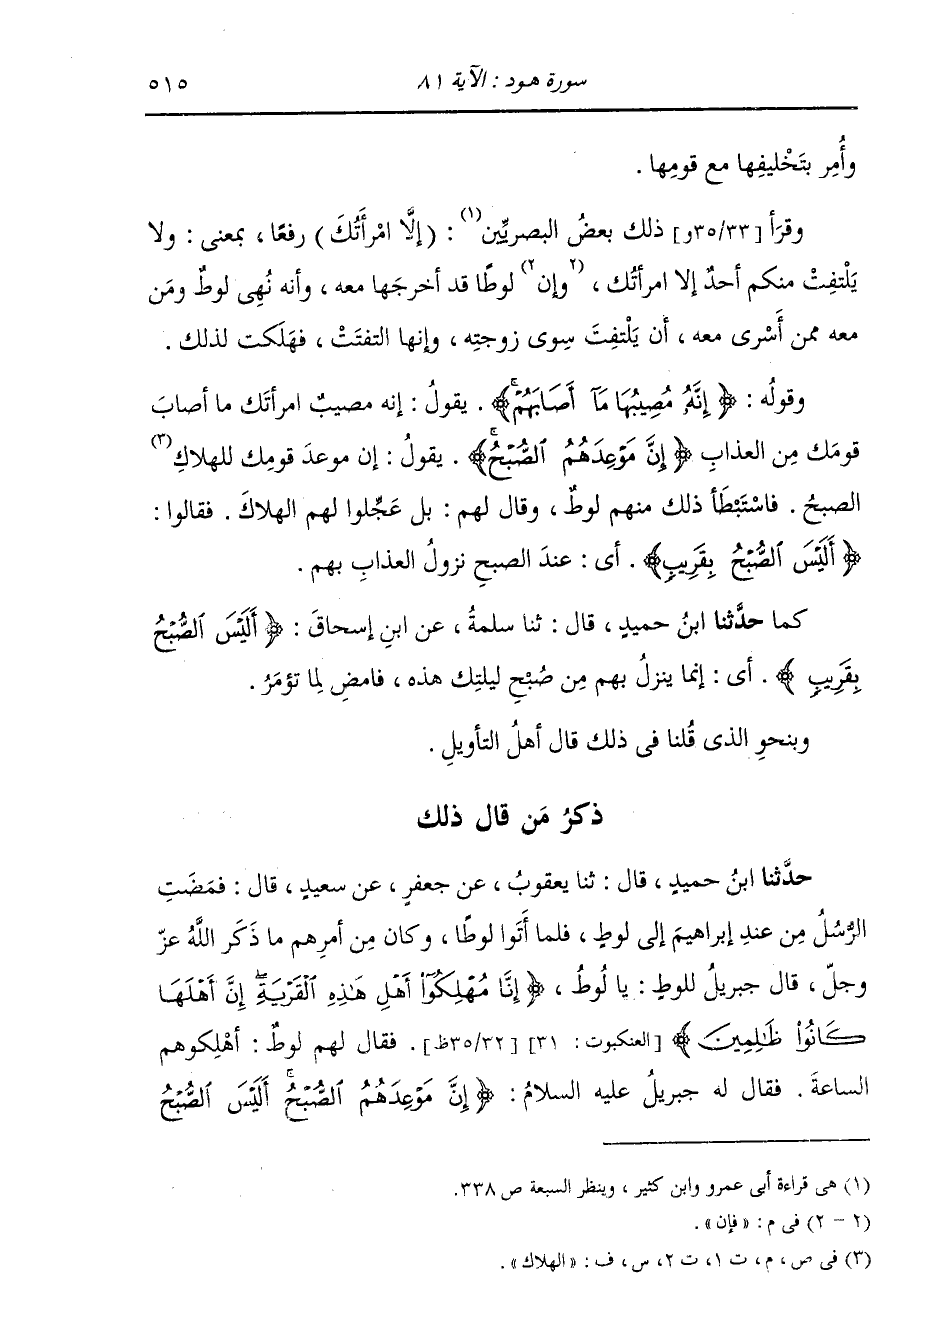 سورة هود : الآية ٨١
٥١٥
وأُمِر بتَخْليفِها مع قومِها .
وقرَأ [٣٥/٣٣و] ذلك بعضُ البصريِّين(١) : (إلَّا امْرَأَتُكَ) رفعًا ، بمعنى : ولا
يَلْتفِتْ منكم أحدٌ إلا امرأتُك ، (٢وإن٢) لوطًا قد أخرجَها معه ، وأنه نُهِى لوطٌ ومَن
معه ممن أَسْرى معه ، أن يَلْتفِتَ سِوى زوجتِه ، وإنها التفتَتْ ، فهَلَكت لذلك .
وقولُه : ﴿ إِنَّهُۥ مُصِيبُهَا مَآ أَصَابَهُمْۚ ﴾ . يقولُ : إنه مصيبٌ امرأتَك ما أصابَ
قومَك مِن العذابِ ﴿ إِنَّ مَوْعِدَهُمُ ٱلصُّبْحُۚ ﴾ . يقولُ : إن موعدَ قومِك للهلاكِ(٣)
الصبحُ . فاسْتَبْطَأ ذلك منهم لوطٌ ، وقال لهم : بل عَجِّلوا لهم الهلاكَ . فقالوا :
﴿ أَلَيْسَ ٱلصُّبْحُ بِقَرِيبٍ ﴾ . أى : عندَ الصبحِ نزولُ العذابِ بهم .
كما حدَّثنا ابنُ حميدٍ ، قال : ثنا سلمةُ ، عن ابنِ إسحاقَ : ﴿ أَلَيْسَ ٱلصُّبْحُ
بِقَرِيبٍ ﴾ . أى : إنما ينزلُ بهم مِن صُبْحِ ليلتِك هذه ، فامضِ لِما تؤمَرُ .
وبنحوِ الذى قُلنا فى ذلك قال أهلُ التأويلِ .
ذكرُ مَن قال ذلك
حدَّثنا ابنُ حميدٍ ، قال : ثنا يعقوبُ ، عن جعفرٍ ، عن سعيدٍ ، قال : فمَضَتِ
الرُّسُلُ مِن عندِ إبراهيمَ إلى لوطٍ ، فلما أَتَوا لوطًا ، وكان مِن أمرِهم ما ذَكَر اللَّهُ عزّ
وجلّ ، قال جبريلُ للوطٍ : يا لُوطُ ، ﴿ إِنَّا مُهْلِكُوٓا۟ أَهْلِ هَـٰذِهِ ٱلْقَرْيَةِۖ إِنَّ أَهْلَهَا
كَانُوا۟ ظَـٰلِمِينَ ﴾ [العنكبوت : ٣١] [٣٥/٣٢ظ] . فقال لهم لوطٌ : أهْلِكوهم
الساعةَ . فقال له جبريلُ عليه السلامُ : ﴿ إِنَّ مَوْعِدَهُمُ ٱلصُّبْحُۚ أَلَيْسَ ٱلصُّبْحُ
(١) هى قراءة أبى عمرو وابن كثير ، وينظر السبعة ص ٣٣٨.
(٢ - ٢) فى م : «فإن» .
(٣) فى ص ، م ، ت ١، ت ٢، س ، ف : «الهلاك» .